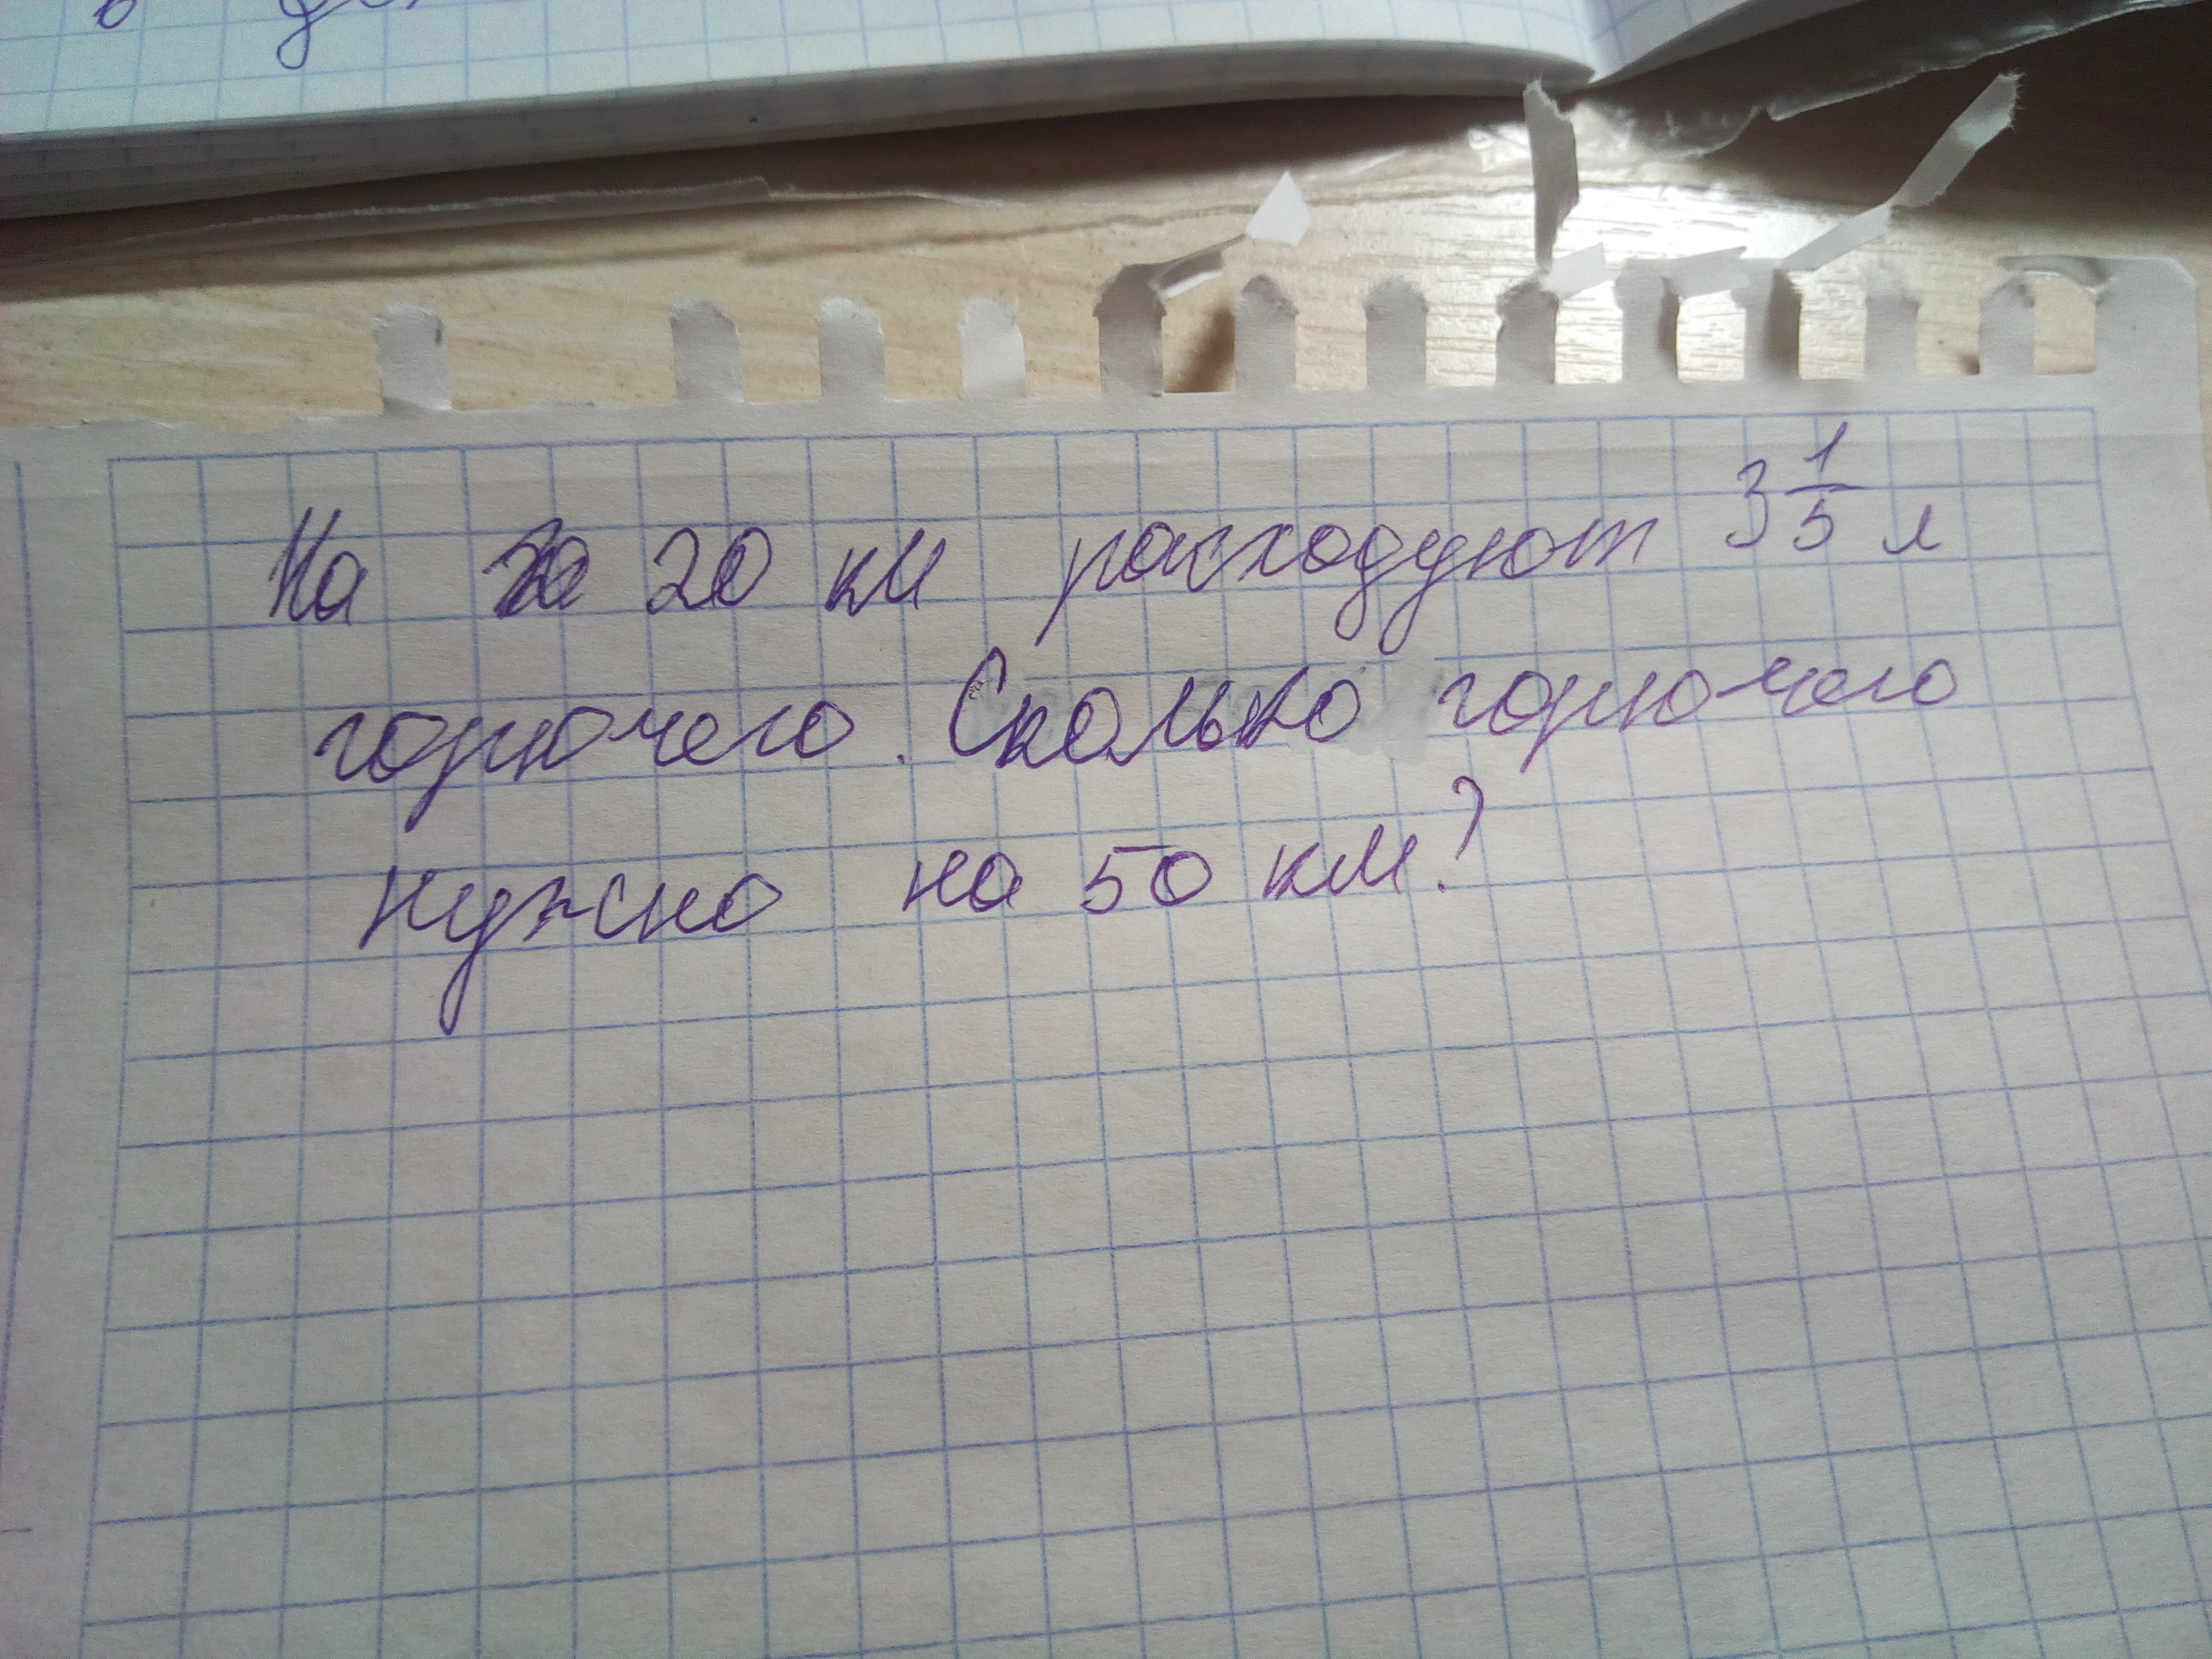 На 20 км расходуют 3 1/5 л
горючего. Сколько горючего
нужно на 50 км?